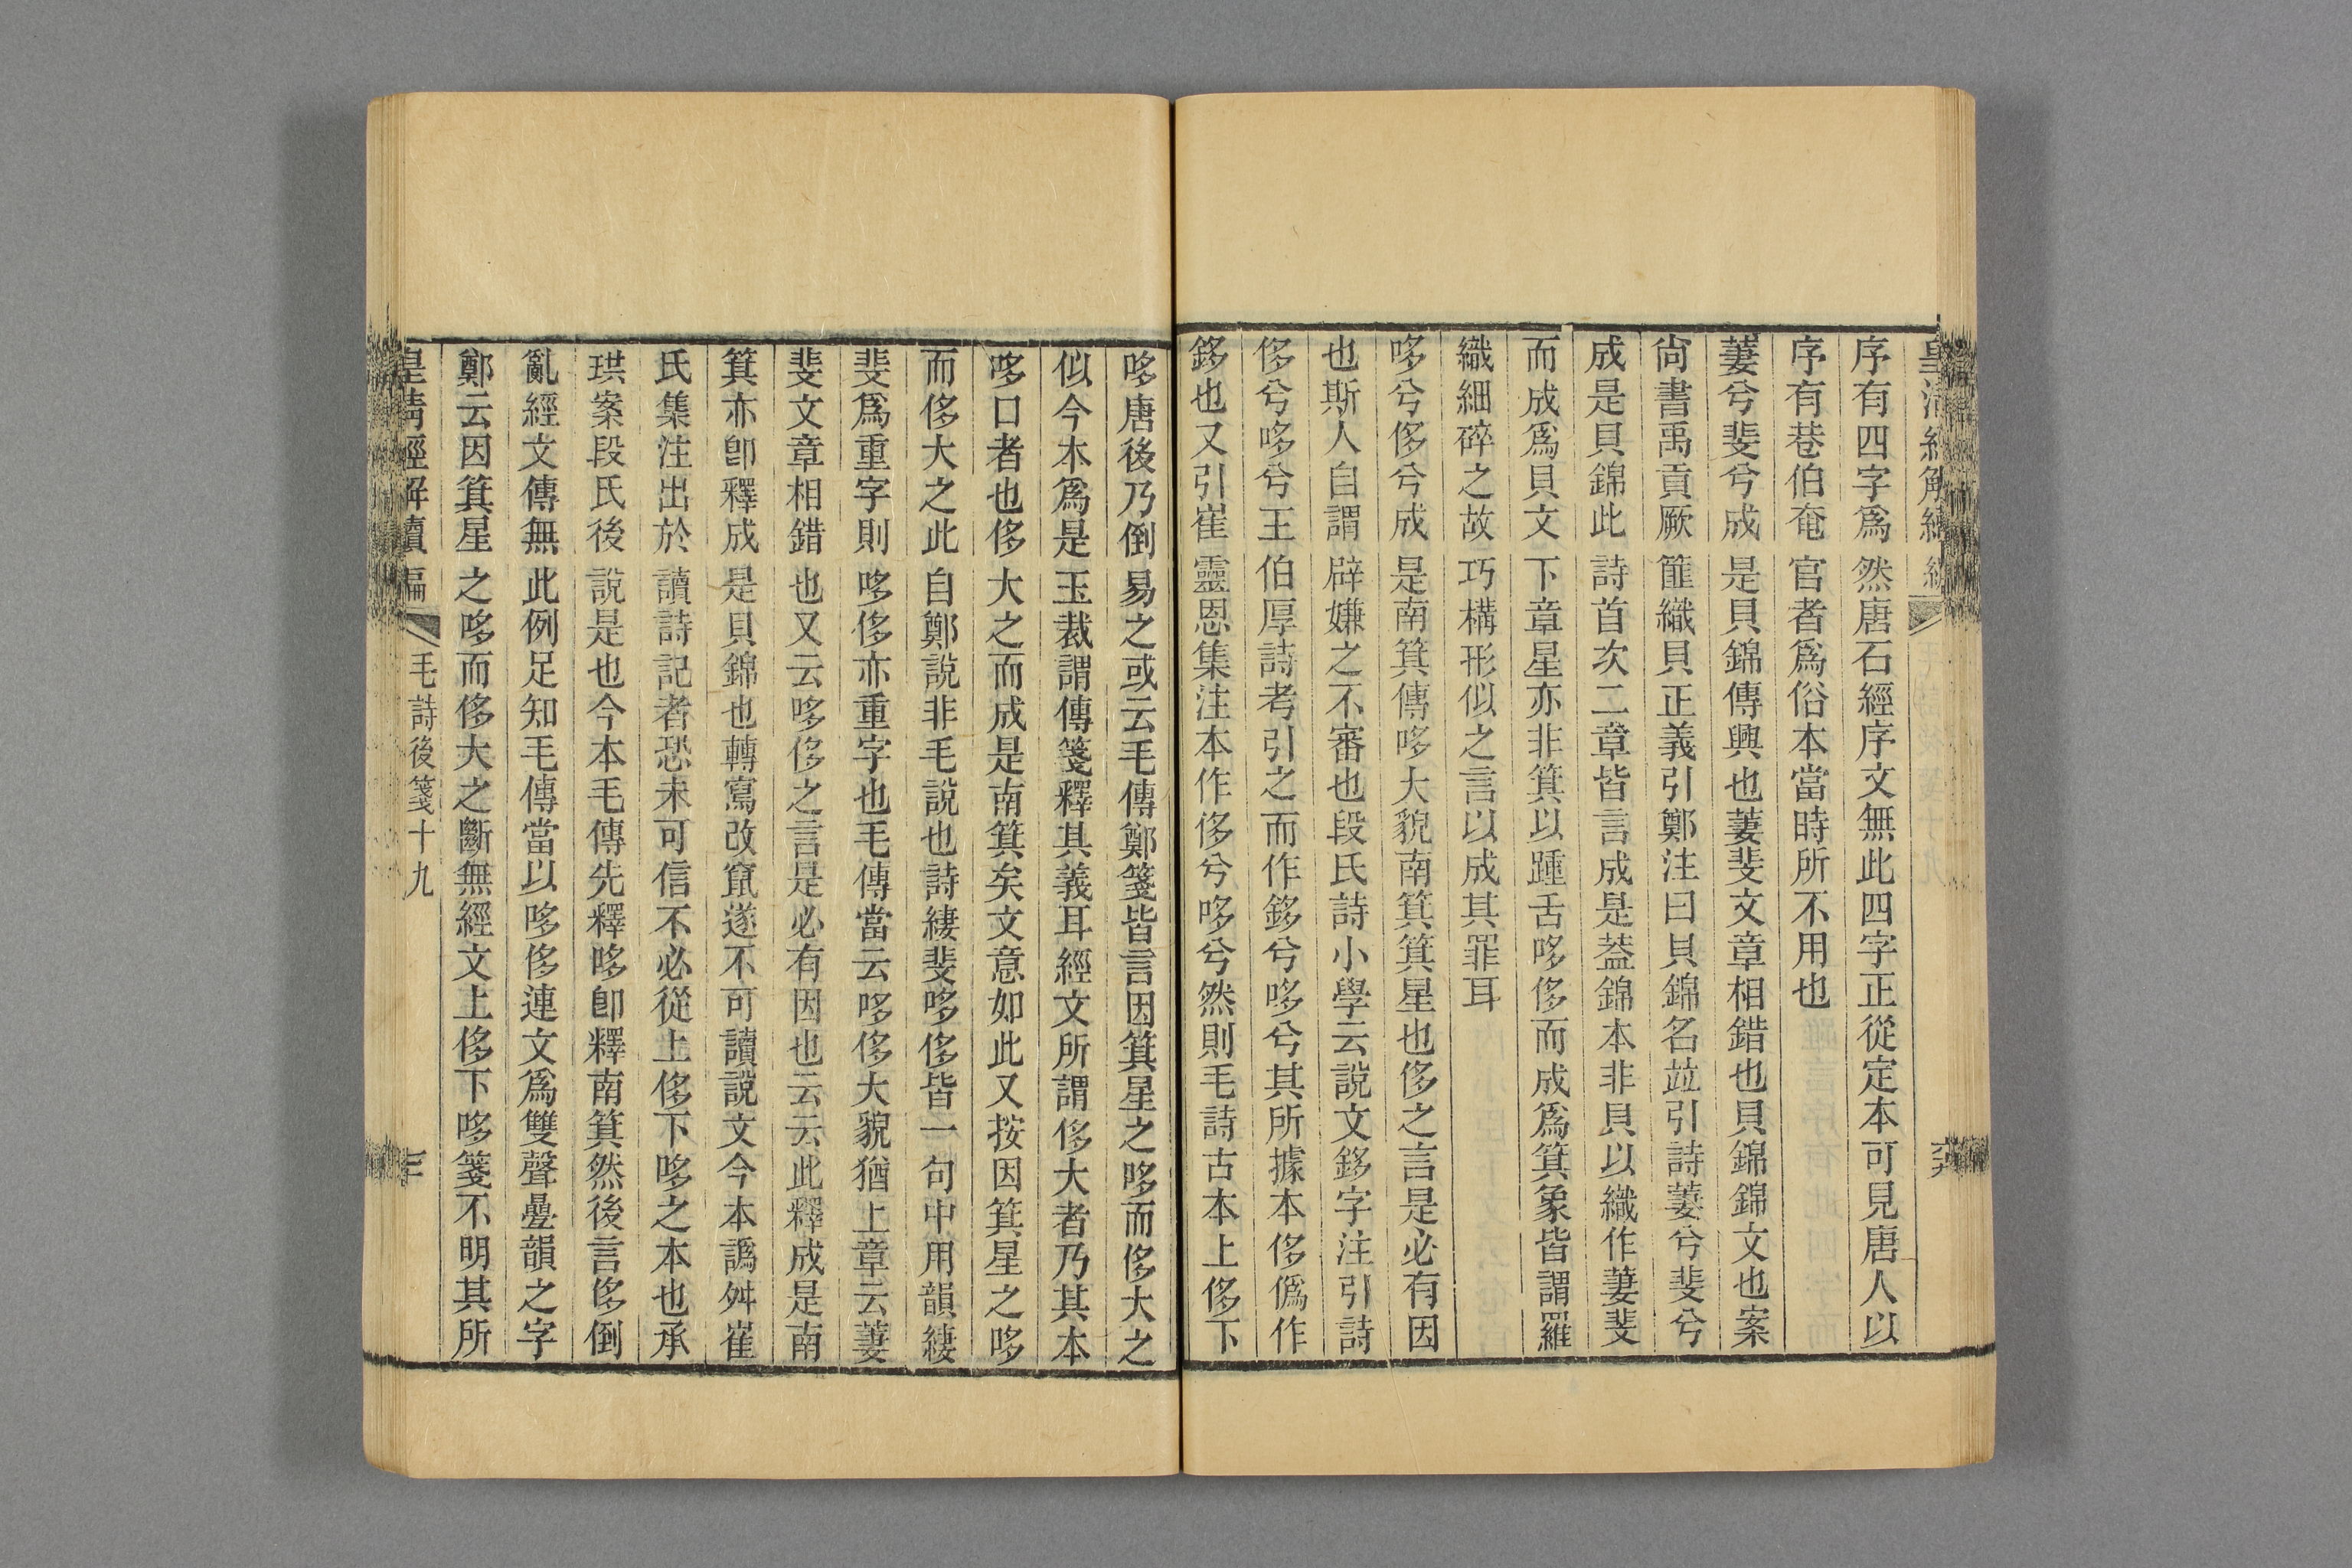 序有四字爲然唐石經序文無此四字正從定本可見唐人以
序有巷伯奄官者爲俗本當時所不用也
萋兮斐兮成是貝錦傳興也萋斐文章相錯也貝錦錦文也案
尙書禹貢厥篚織貝正義引鄭注曰貝錦名竝引詩萋兮斐兮
成是貝錦此詩首次二章皆言成是葢錦本非貝以織作萋斐
而成爲貝文下章星亦非箕以踵舌哆侈而成爲箕象皆謂羅
織細碎之故巧構形似之言以成其罪耳
哆兮侈兮成是南箕傳哆大貌南箕箕星也侈之言是必有因
也斯人自謂辟嫌之不審也段氏詩小學云說文鉹字注引詩
侈兮哆兮王伯厚詩考引之而作鉹兮哆兮其所據本侈僞作
鉹也又引崔靈恩集注本作侈兮哆兮然則毛詩古本上侈下
哆唐後乃倒易之或云毛傳鄭箋皆言因箕星之哆而侈大之
似今本爲是玉裁謂傳箋釋其義耳經文所謂侈大者乃其本
哆口者也侈大之而成是南箕矣文意如此又按因箕星之哆
而侈大之此自鄭說非毛說也詩緀斐哆侈皆一句中用韻緀
斐爲重字則哆侈亦重字也毛傳當云哆侈大貌猶上章云萋
斐文章相錯也又云哆侈之言是必有因也云云此釋成是南
箕亦卽釋成是貝錦也轉寫改竄遂不可讀說文今本譌舛崔
氏集注出於讀詩記者恐未可信不必從上侈下哆之本也承
珙案段氏後說是也今本毛傳先釋哆卽釋南箕然後言侈倒
亂經文傳無此例足知毛傳當以哆侈連文爲雙聲疊韻之字
鄭云因箕星之哆而侈大之斷無經文上侈下哆箋不明其所
皇淸經解續編 毛詩後箋十九